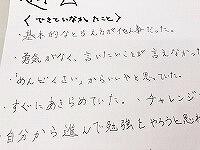 〈できていなかったこと〉
・基本的な
・勇気がなく、言いたいことが言えなかった
・「めんどくさい」からいいやと思っていた。
・すぐにあきらめていた。・チャレンジ
・自分から進んで勉強をやろうと思わ